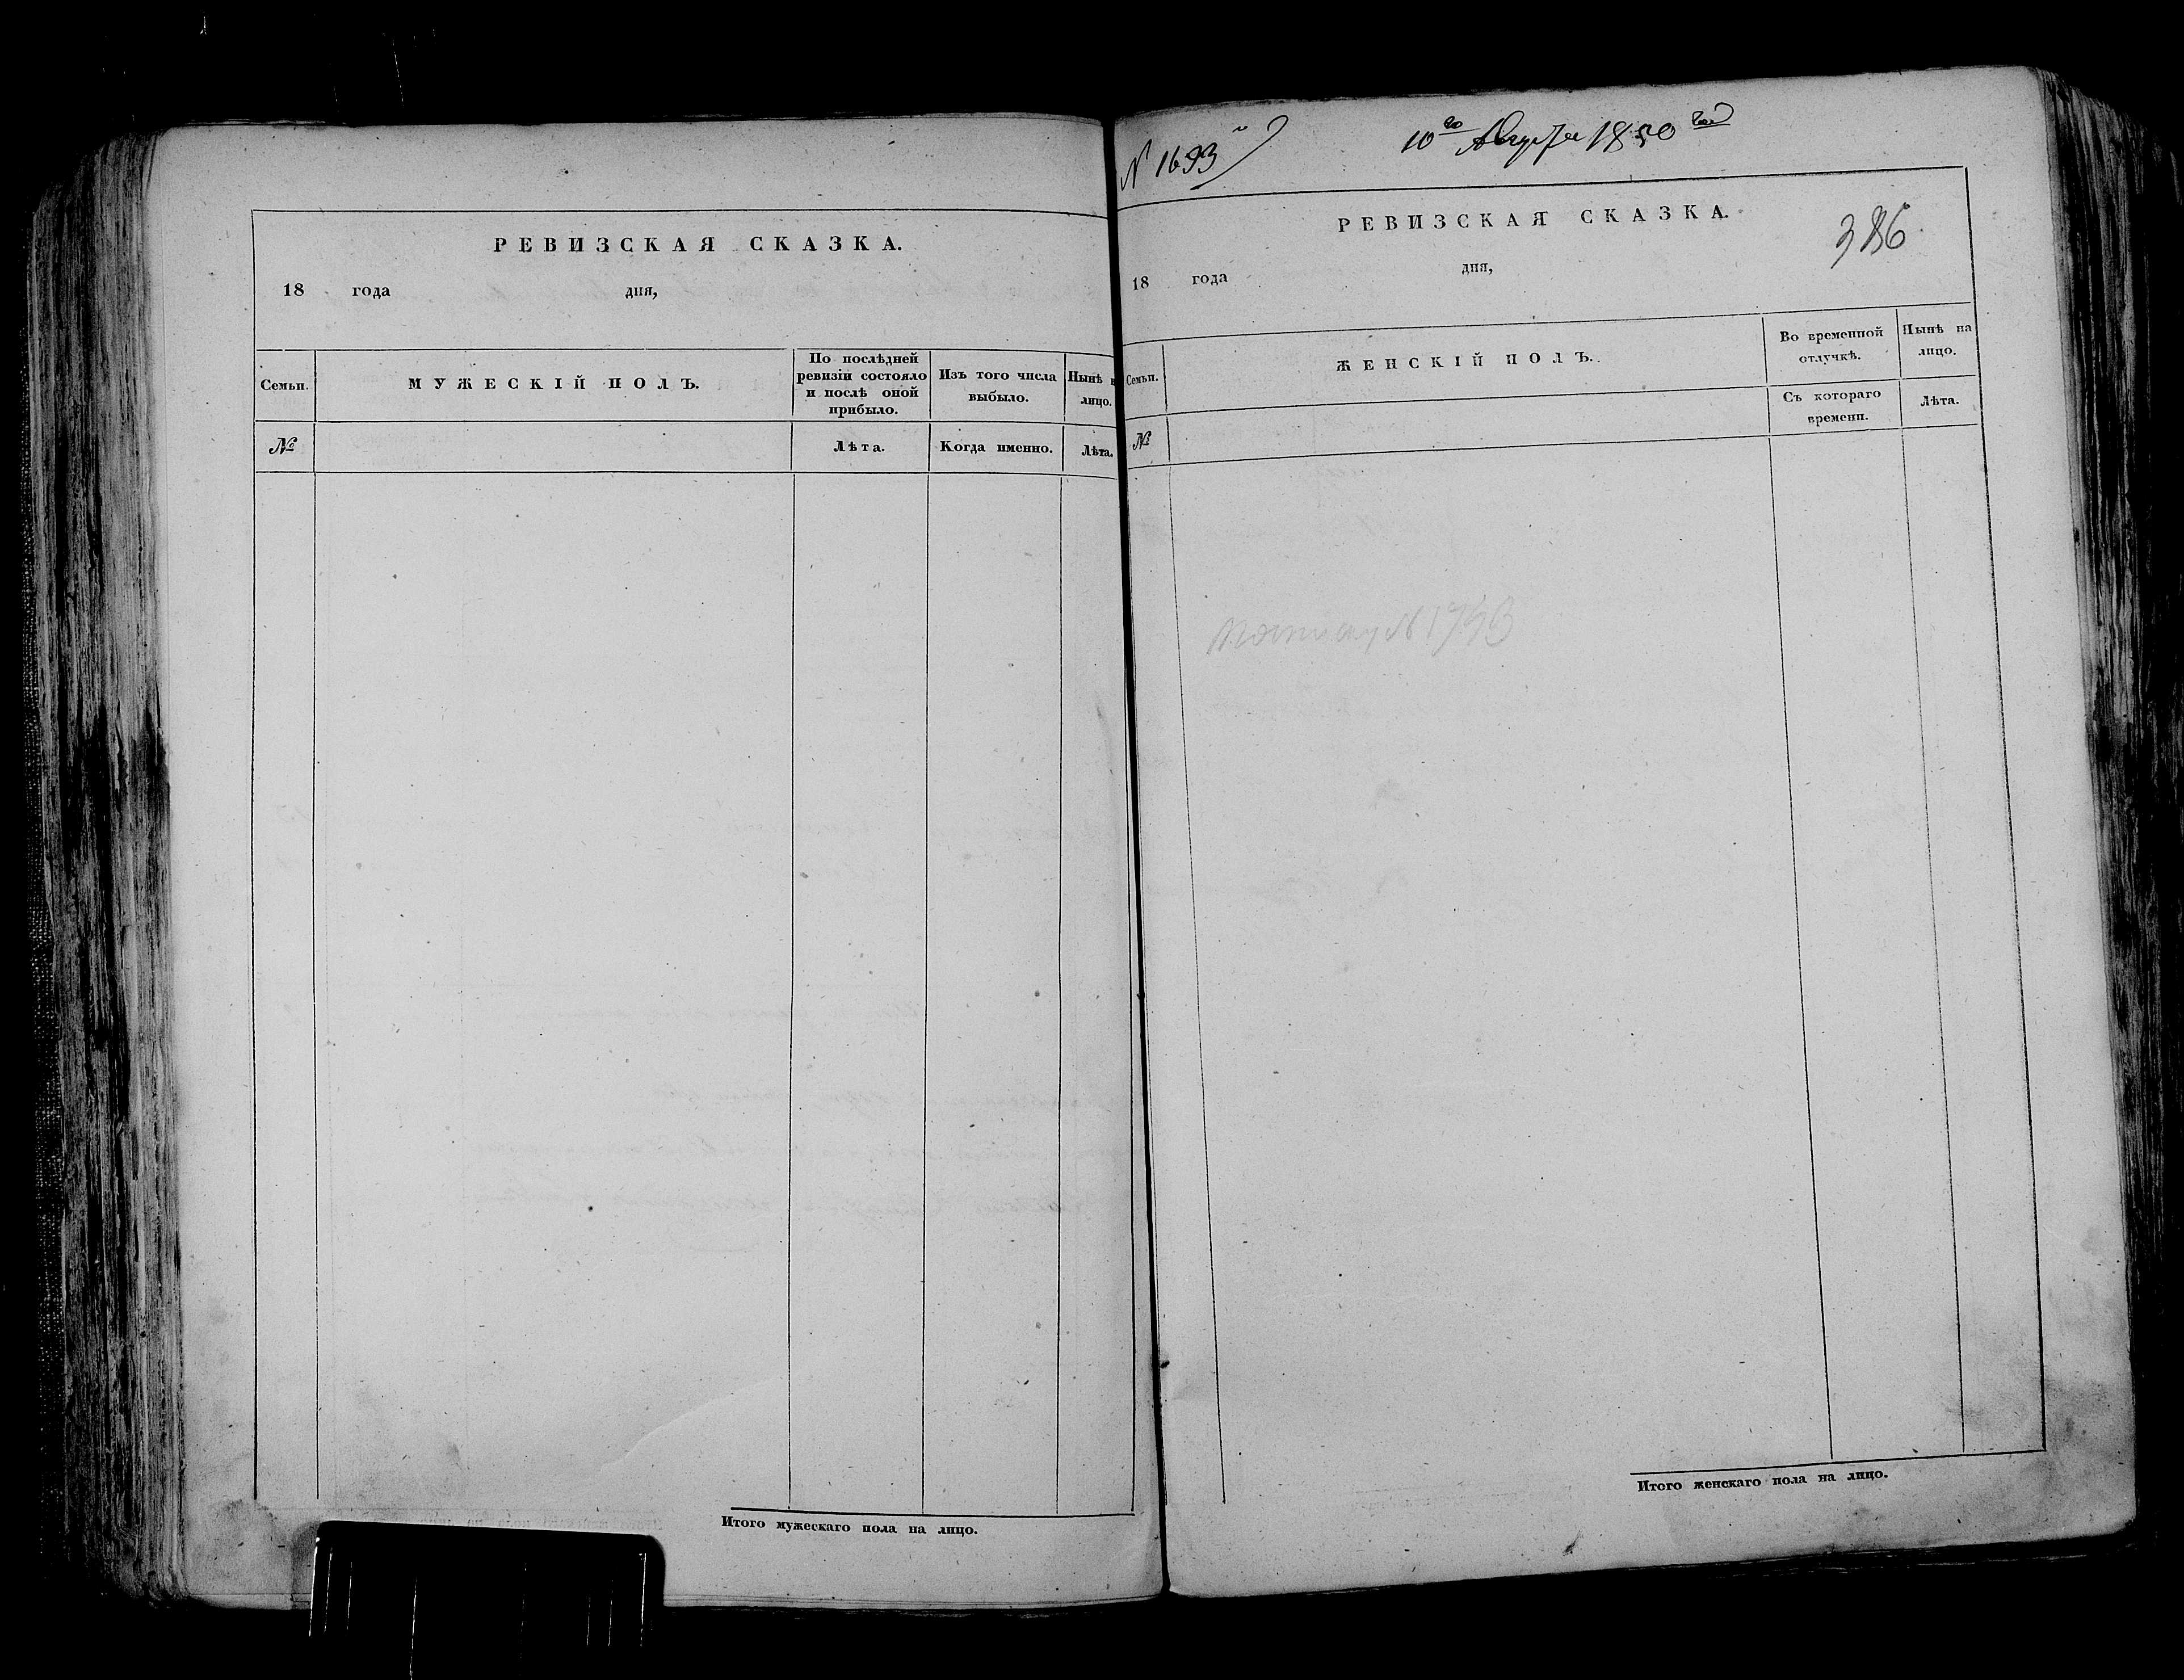 РЕВИЗСКАЯ СКАЗКА.
18 года дня,
Семьи.
МУЖЕСКІЙ ПОЛЪ.
По послѣдней ревизіи состояло и послѣ оной прибыло.
Изъ того числа выбыло.
Нынѣ н лицо.
№
Лѣта.
Когда именно.
Лѣта.
Итого мужескаго пола на лицо.
N 1693й
10го Августа 1850 года
РЕВИЗСКАЯ СКАЗКА.
386
18 года дня,
Семьи.
ЖЕНСКІЙ ПОЛЪ.
Во временной отлучкѣ.
Нынѣ на лицо.
№
Съ котораго времени.
Лѣта.
Итого женскаго пола на лицо.